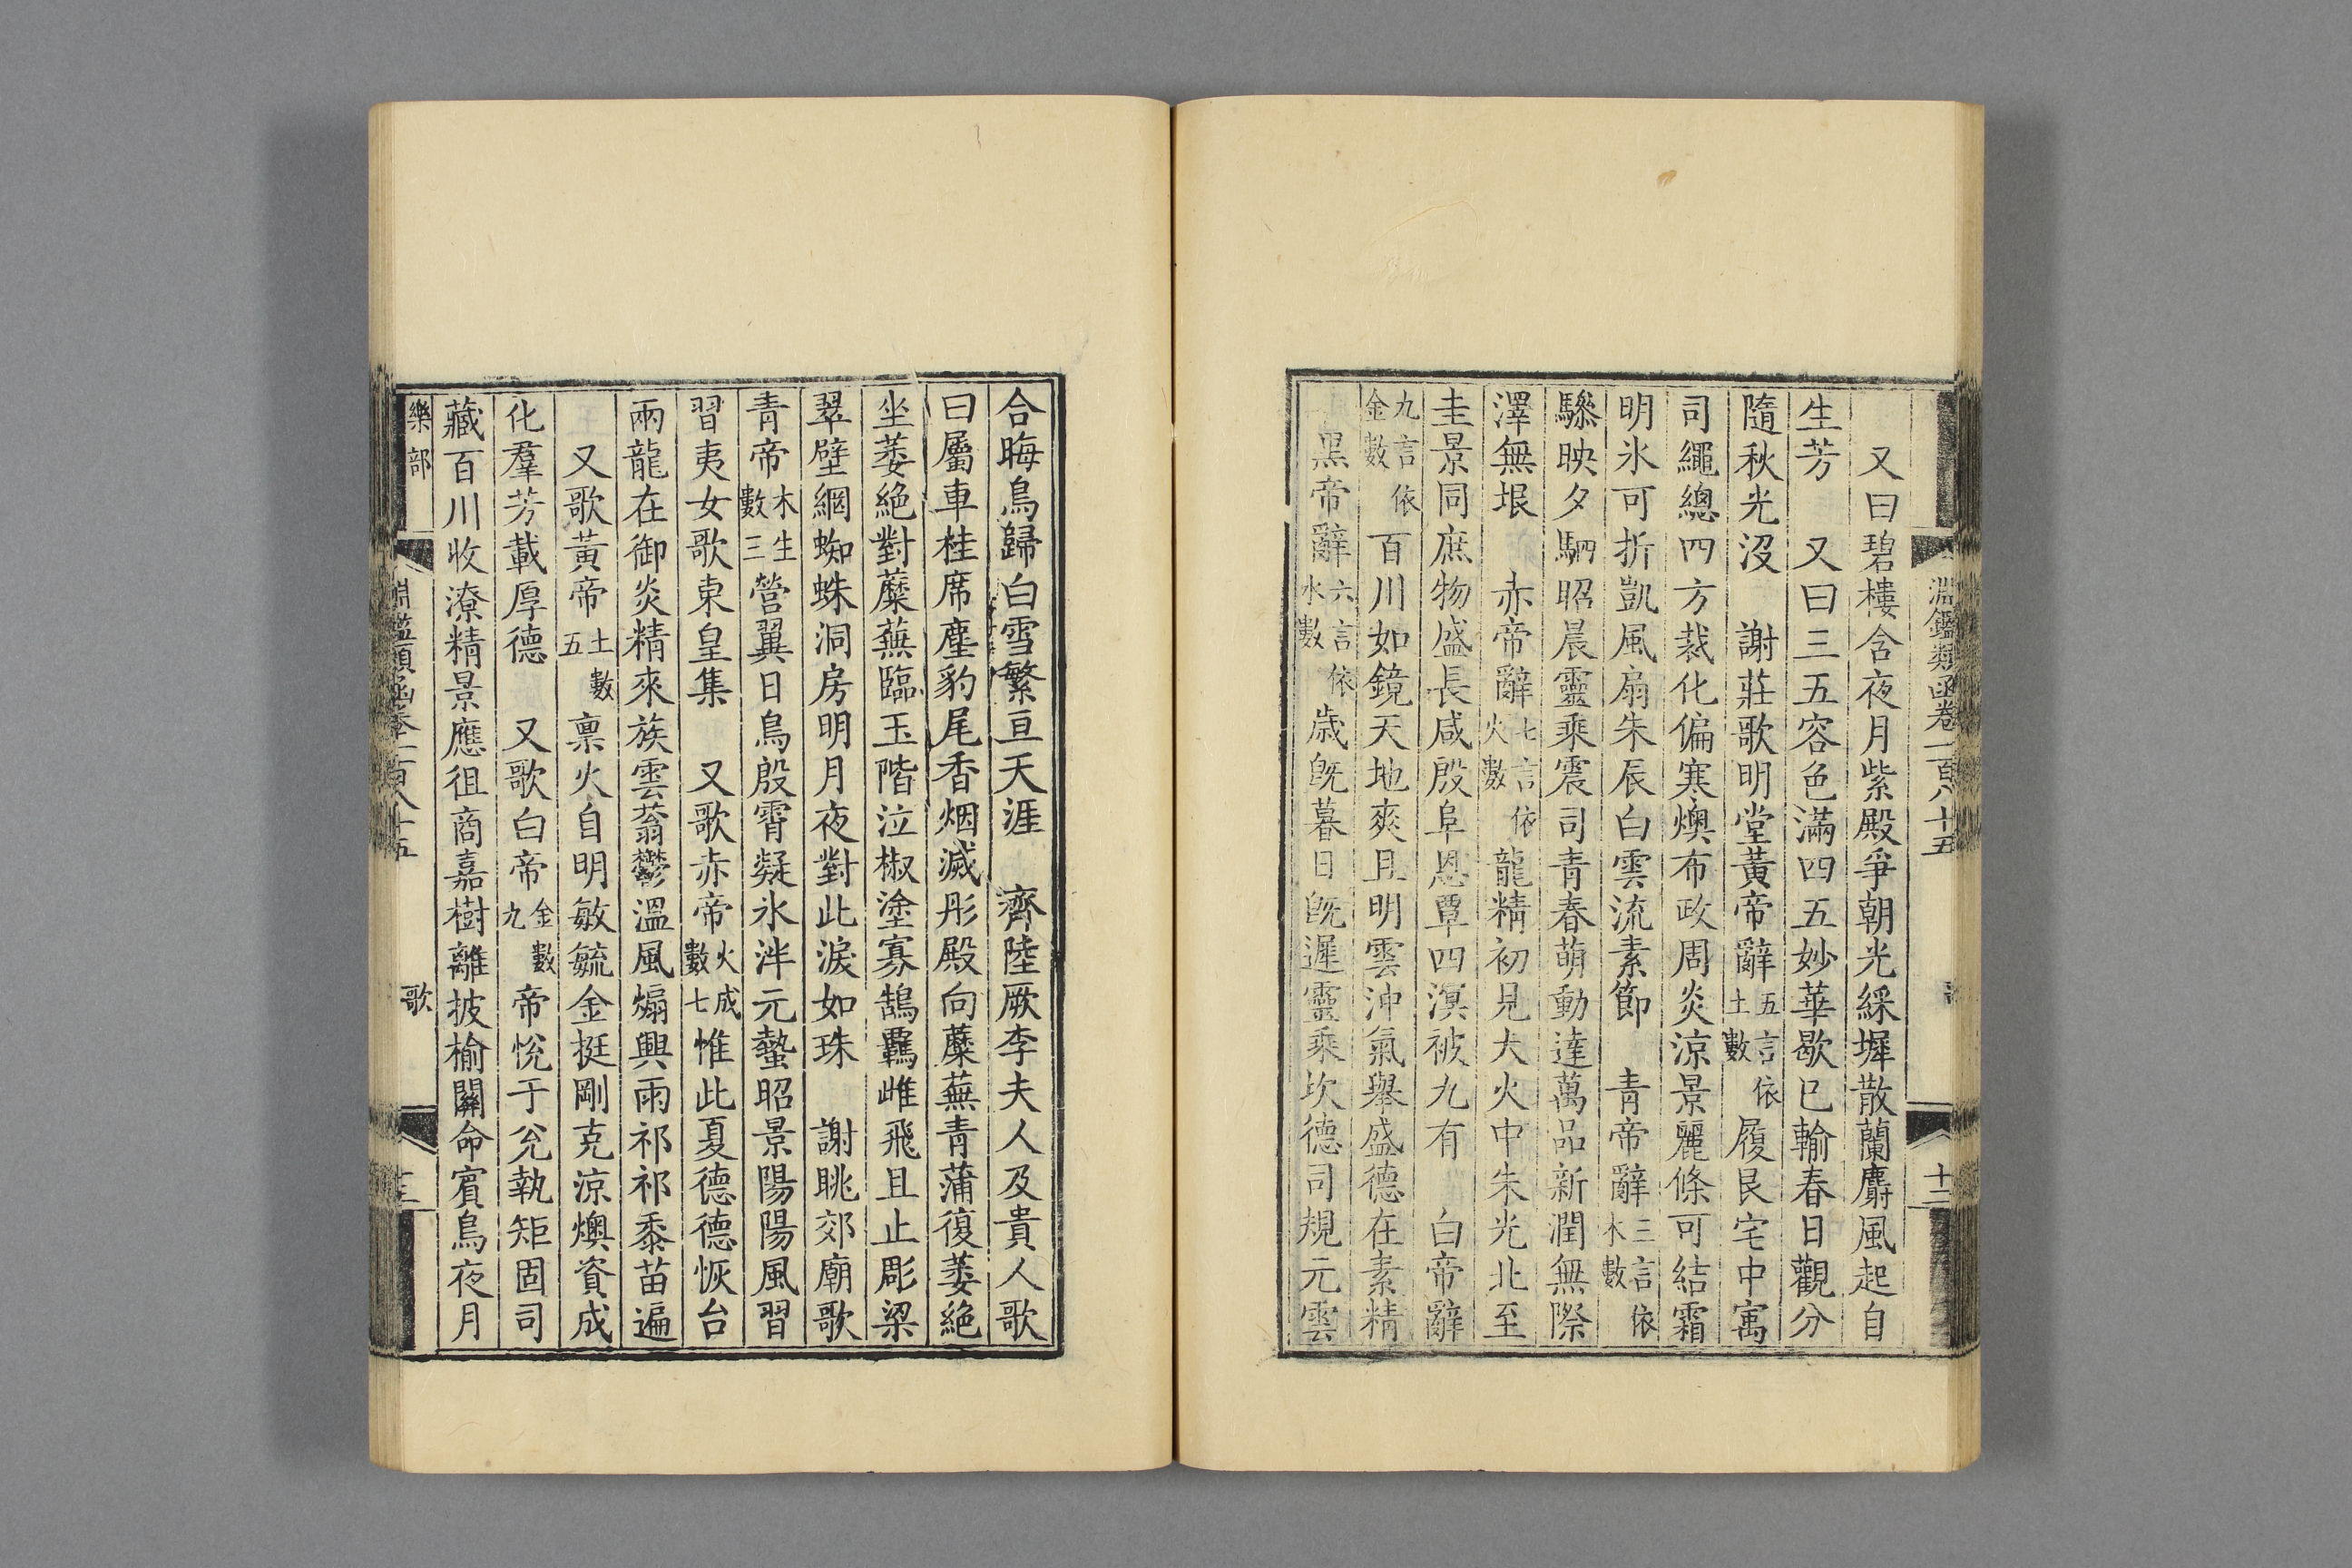 淵鑑類函卷一百八十五
十二
又曰碧樓含夜月紫殿爭朝光綵墀散蘭麝風起自
生芳　又曰三五容色滿四五妙華歇已輸春日觀分
隨秋光沒　謝莊歌明堂黃帝辭五言依土數履艮宅中寓
司繩總四方裁化偏寒燠布政周炎涼景麗條可結霜
明氷可折凱風扇朱辰白雲流素節　青帝辭三言依木數
驂映夕駟昭晨靈乘震司青春萌動達萬品新潤無際
澤無垠　赤帝辭七言依火數龍精初見大火中朱光北至
圭景同庶物盛長咸殷阜恩覃四溟被九有　白帝辭
九言依金數百川如鏡天地爽且明雲沖氣舉盛德在素精
黑帝辭六言依水數歲旣暮日旣遲靈乘坎德司規元雲
合晦鳥歸白雪繁亘天涯　齊陸厥李夫人及貴人歌
曰屬車桂席塵豹尾香烟滅彤殿向蘼蕪青蒲復萎絕
坐萎絕對蘼蕪臨玉階泣椒塗寡鵠羈雌飛且止彫梁
翠壁網蜘蛛洞房明月夜對此淚如珠　謝眺郊廟歌
青帝木生數三營翼日鳥殷霄凝氷泮元蟄昭景陽陽風習
習夷女歌東皇集　又歌赤帝火成數七惟此夏德德恢台
兩龍在御炎精來族雲蓊鬱溫風煽興雨祁祁黍苗遍
又歌黃帝土數五稟火自明敏毓金挺剛克涼燠資成
化羣芳載厚德　又歌白帝金數九帝悅于兊執矩固司
藏百川收潦精景應徂商嘉樹離披楡關命賓鳥夜月
樂部
淵鑑類函卷一百八十五
歌